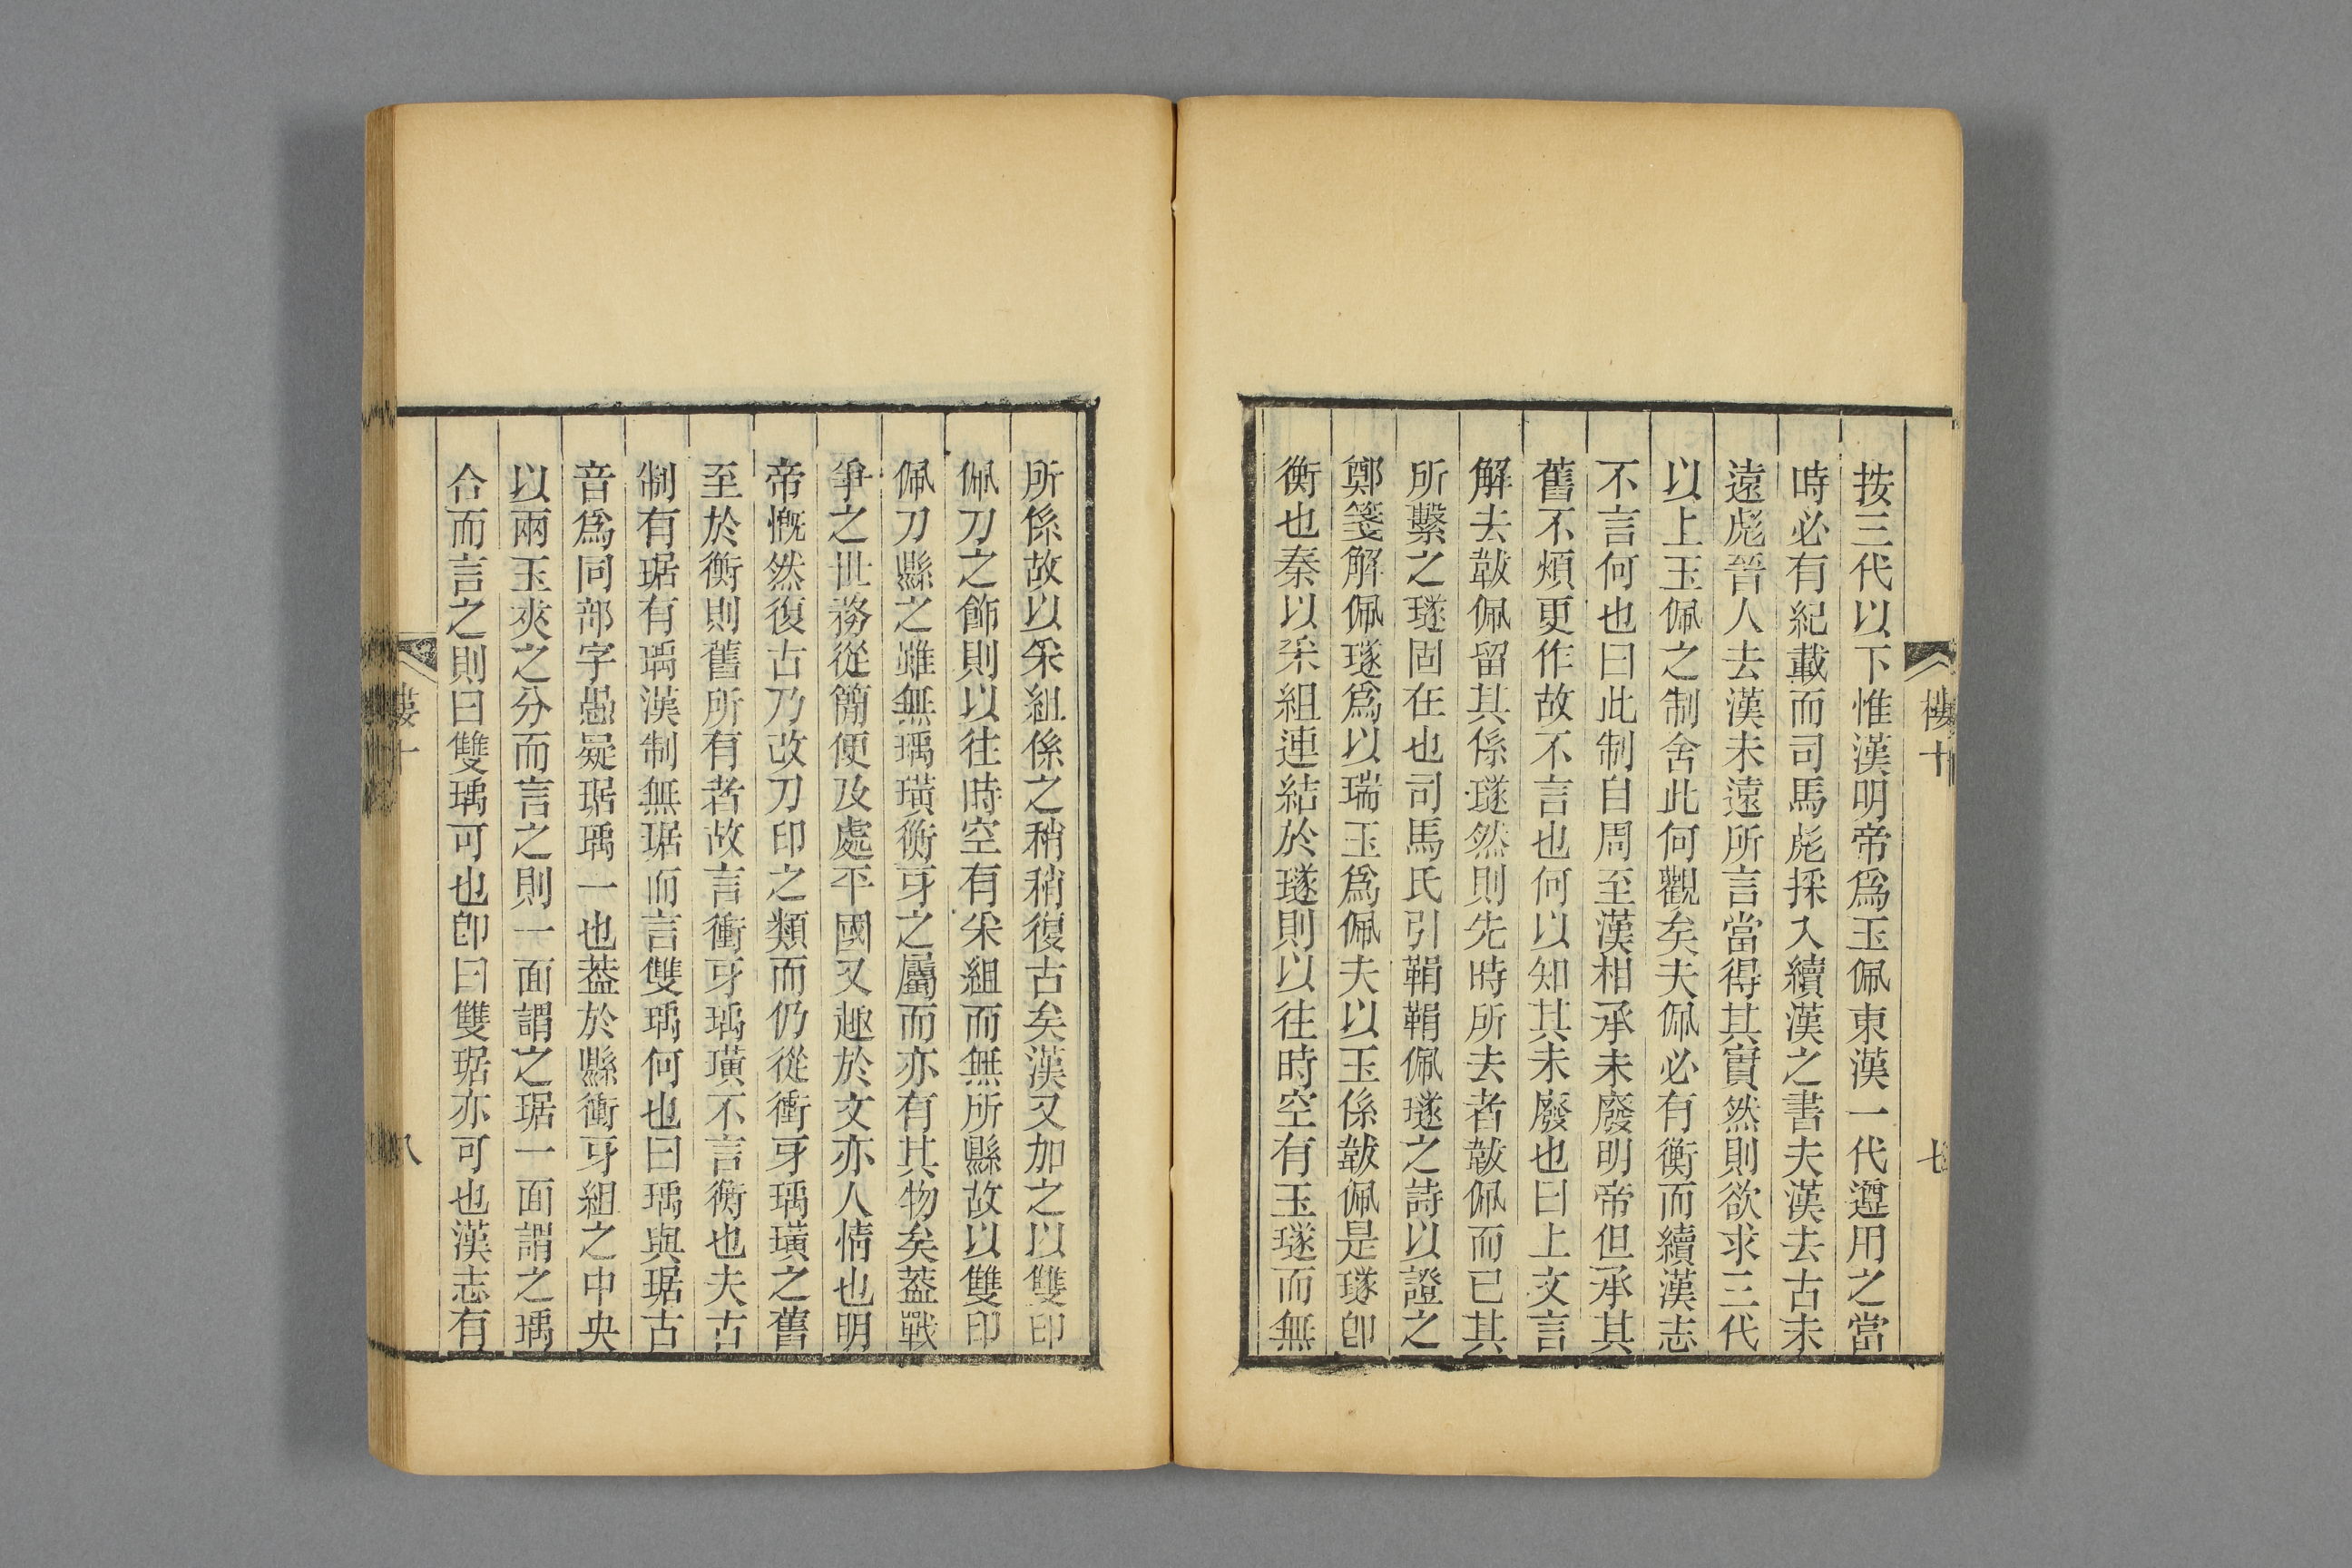 樓十
七
按三代以下惟漢明帝爲玉佩東漢一代遵用之當
時必有紀載而司馬彪採入續漢之書夫漢去古未
遠彪晉人去漢未遠所言當得其實然則欲求三代
以上玉佩之制舍此何觀矣夫佩必有衡而續漢志
不言何也曰此制自周至漢相承未廢明帝但承其
舊不煩更作故不言也何以知其未廢也曰上文言
解去韍佩留其係璲然則先時所去者韍佩而已其
所繫之璲固在也司馬氏引鞙鞙佩璲之詩以證之
鄭箋解佩璲爲以瑞玉爲佩夫以玉係韍佩是璲卽
衡也秦以采組連結於璲則以往時空有玉璲而無
所係故以采組係之稍稍復古矣漢又加之以雙印
佩刀之飾則以往時空有采組而無所縣故以雙印
佩刀縣之雖無瑀璜衝牙之屬而亦有其物矣葢戰
爭之世務從簡便及處平國又趣於文亦人情也明
帝慨然復古乃改刀印之類而仍從衝牙瑀璜之舊
至於衡則舊所有者故言衝牙瑀璜不言衡也夫古
制有琚有瑀漢制無琚而言雙瑀何也曰瑀與琚古
音爲同部字愚疑琚瑀一也葢於縣衝牙組之中央
以兩玉夾之分而言之則一面謂之琚一面謂之瑀
合而言之則曰雙瑀可也卽曰雙琚亦可也漢志有
樓十
八